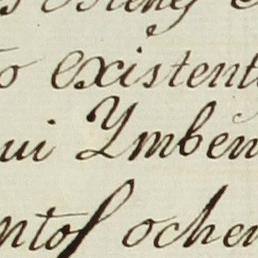 o existent
ui Ymben
ntos ochen